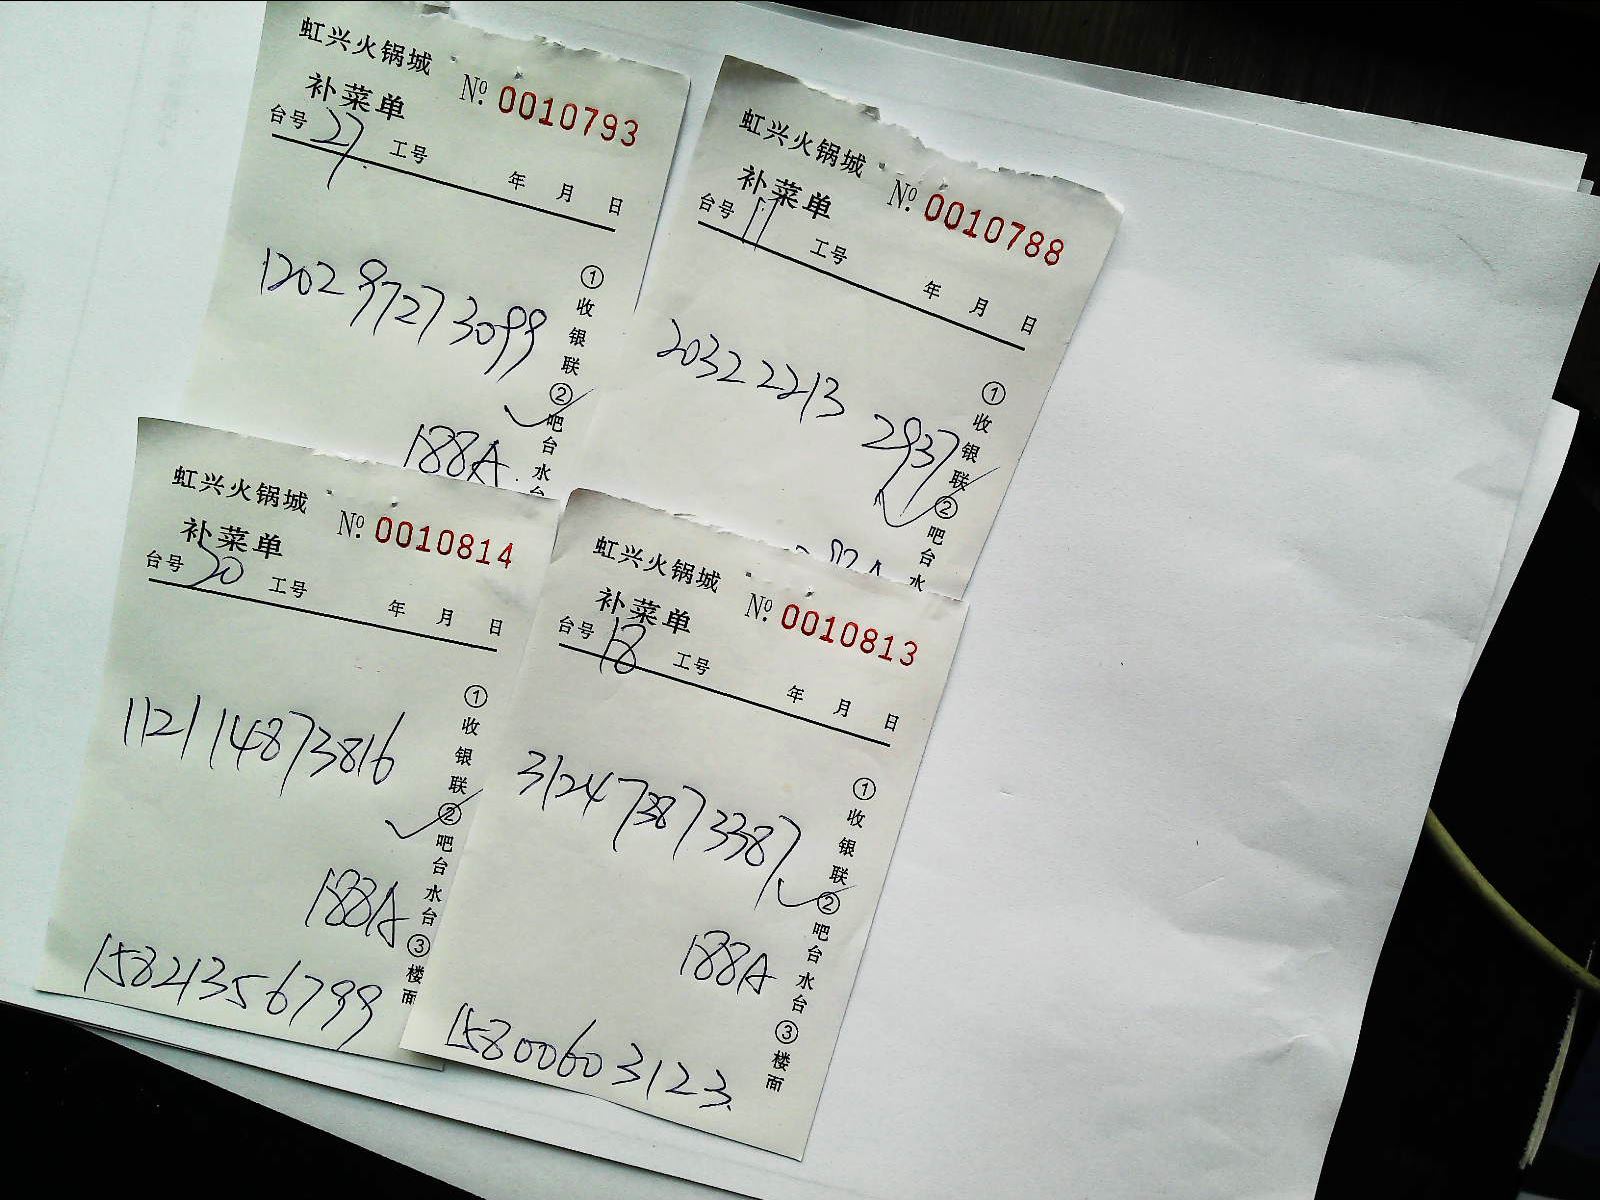 虹兴火锅城
补菜单 №. 0010793
台号 27 工号 年 月 日
1202 9727 3099
188A
①收银联②吧台水台
虹兴火锅城
补菜单 №. 0010788
台号 11 工号 年 月 日
2032 2213 2937
①收银联②吧台水
虹兴火锅城
补菜单 №. 0010814
台号 20 工号 年 月 日
112114873816
188A
15821356799
①收银联②吧台水台③楼面
虹兴火锅城
补菜单 №. 0010813
台号 18 工号 年 月 日
312473873387
188A
15800603123
①收银联②吧台水台③楼面